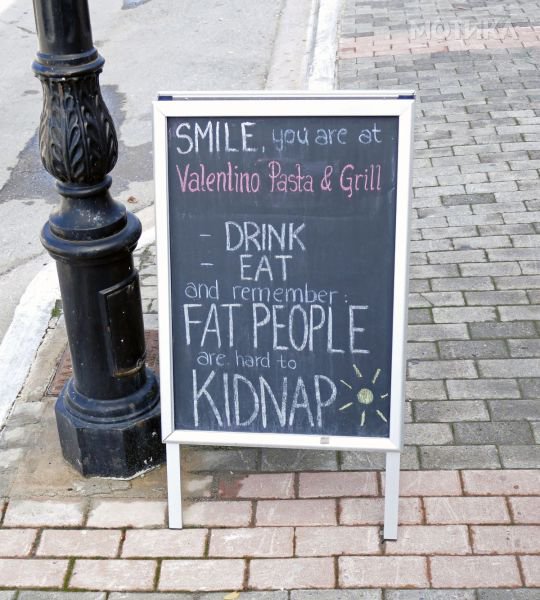 МОТИКА
SMILE, you are at
Valentino Pasta & Grill
- DRINK
- EAT
and remember:
FAT PEOPLE
are hard to
KIDNAP